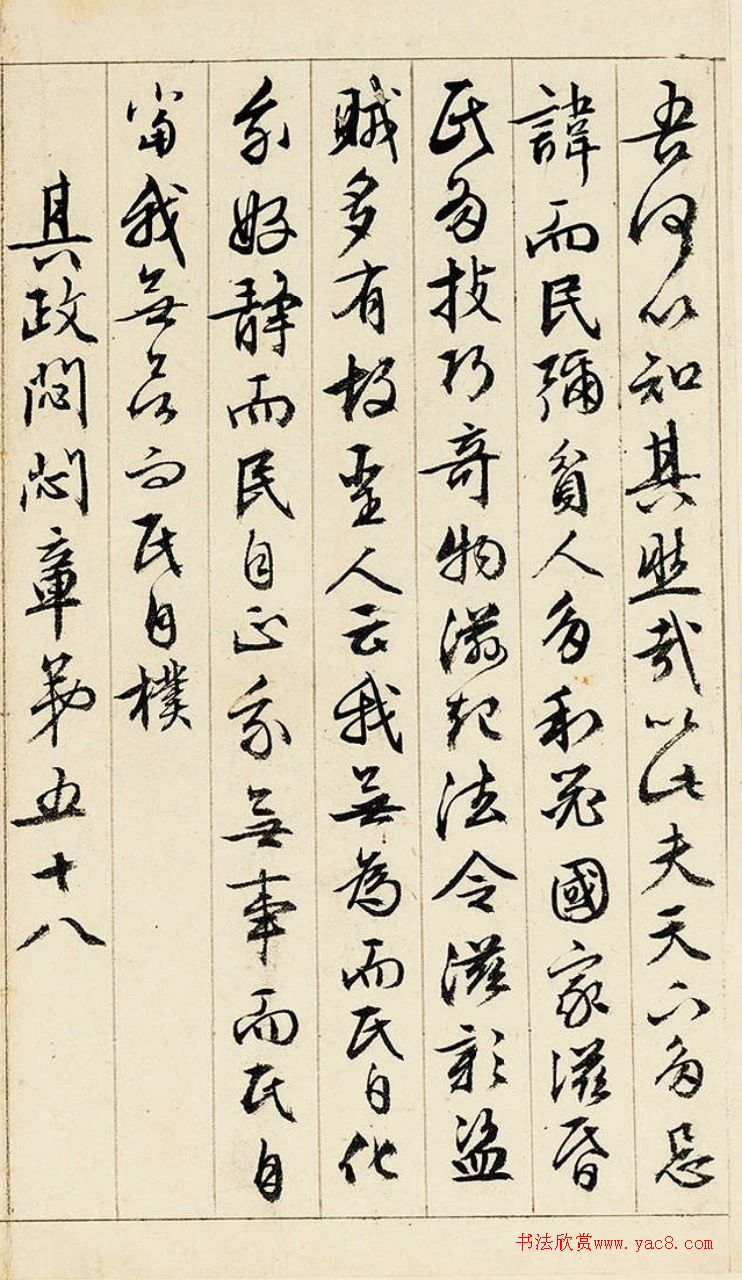 吾何以知其然哉以此夫天下多忌
諱而民彌貧人多利器國家滋昏
民多技巧奇物滋起法令滋彰盜
賊多有故聖人云我無為而民自化
我好靜而民自正我無事而民自
富我無欲而民自樸
其政悶悶章第五十八
书法欣赏www.yac8.com